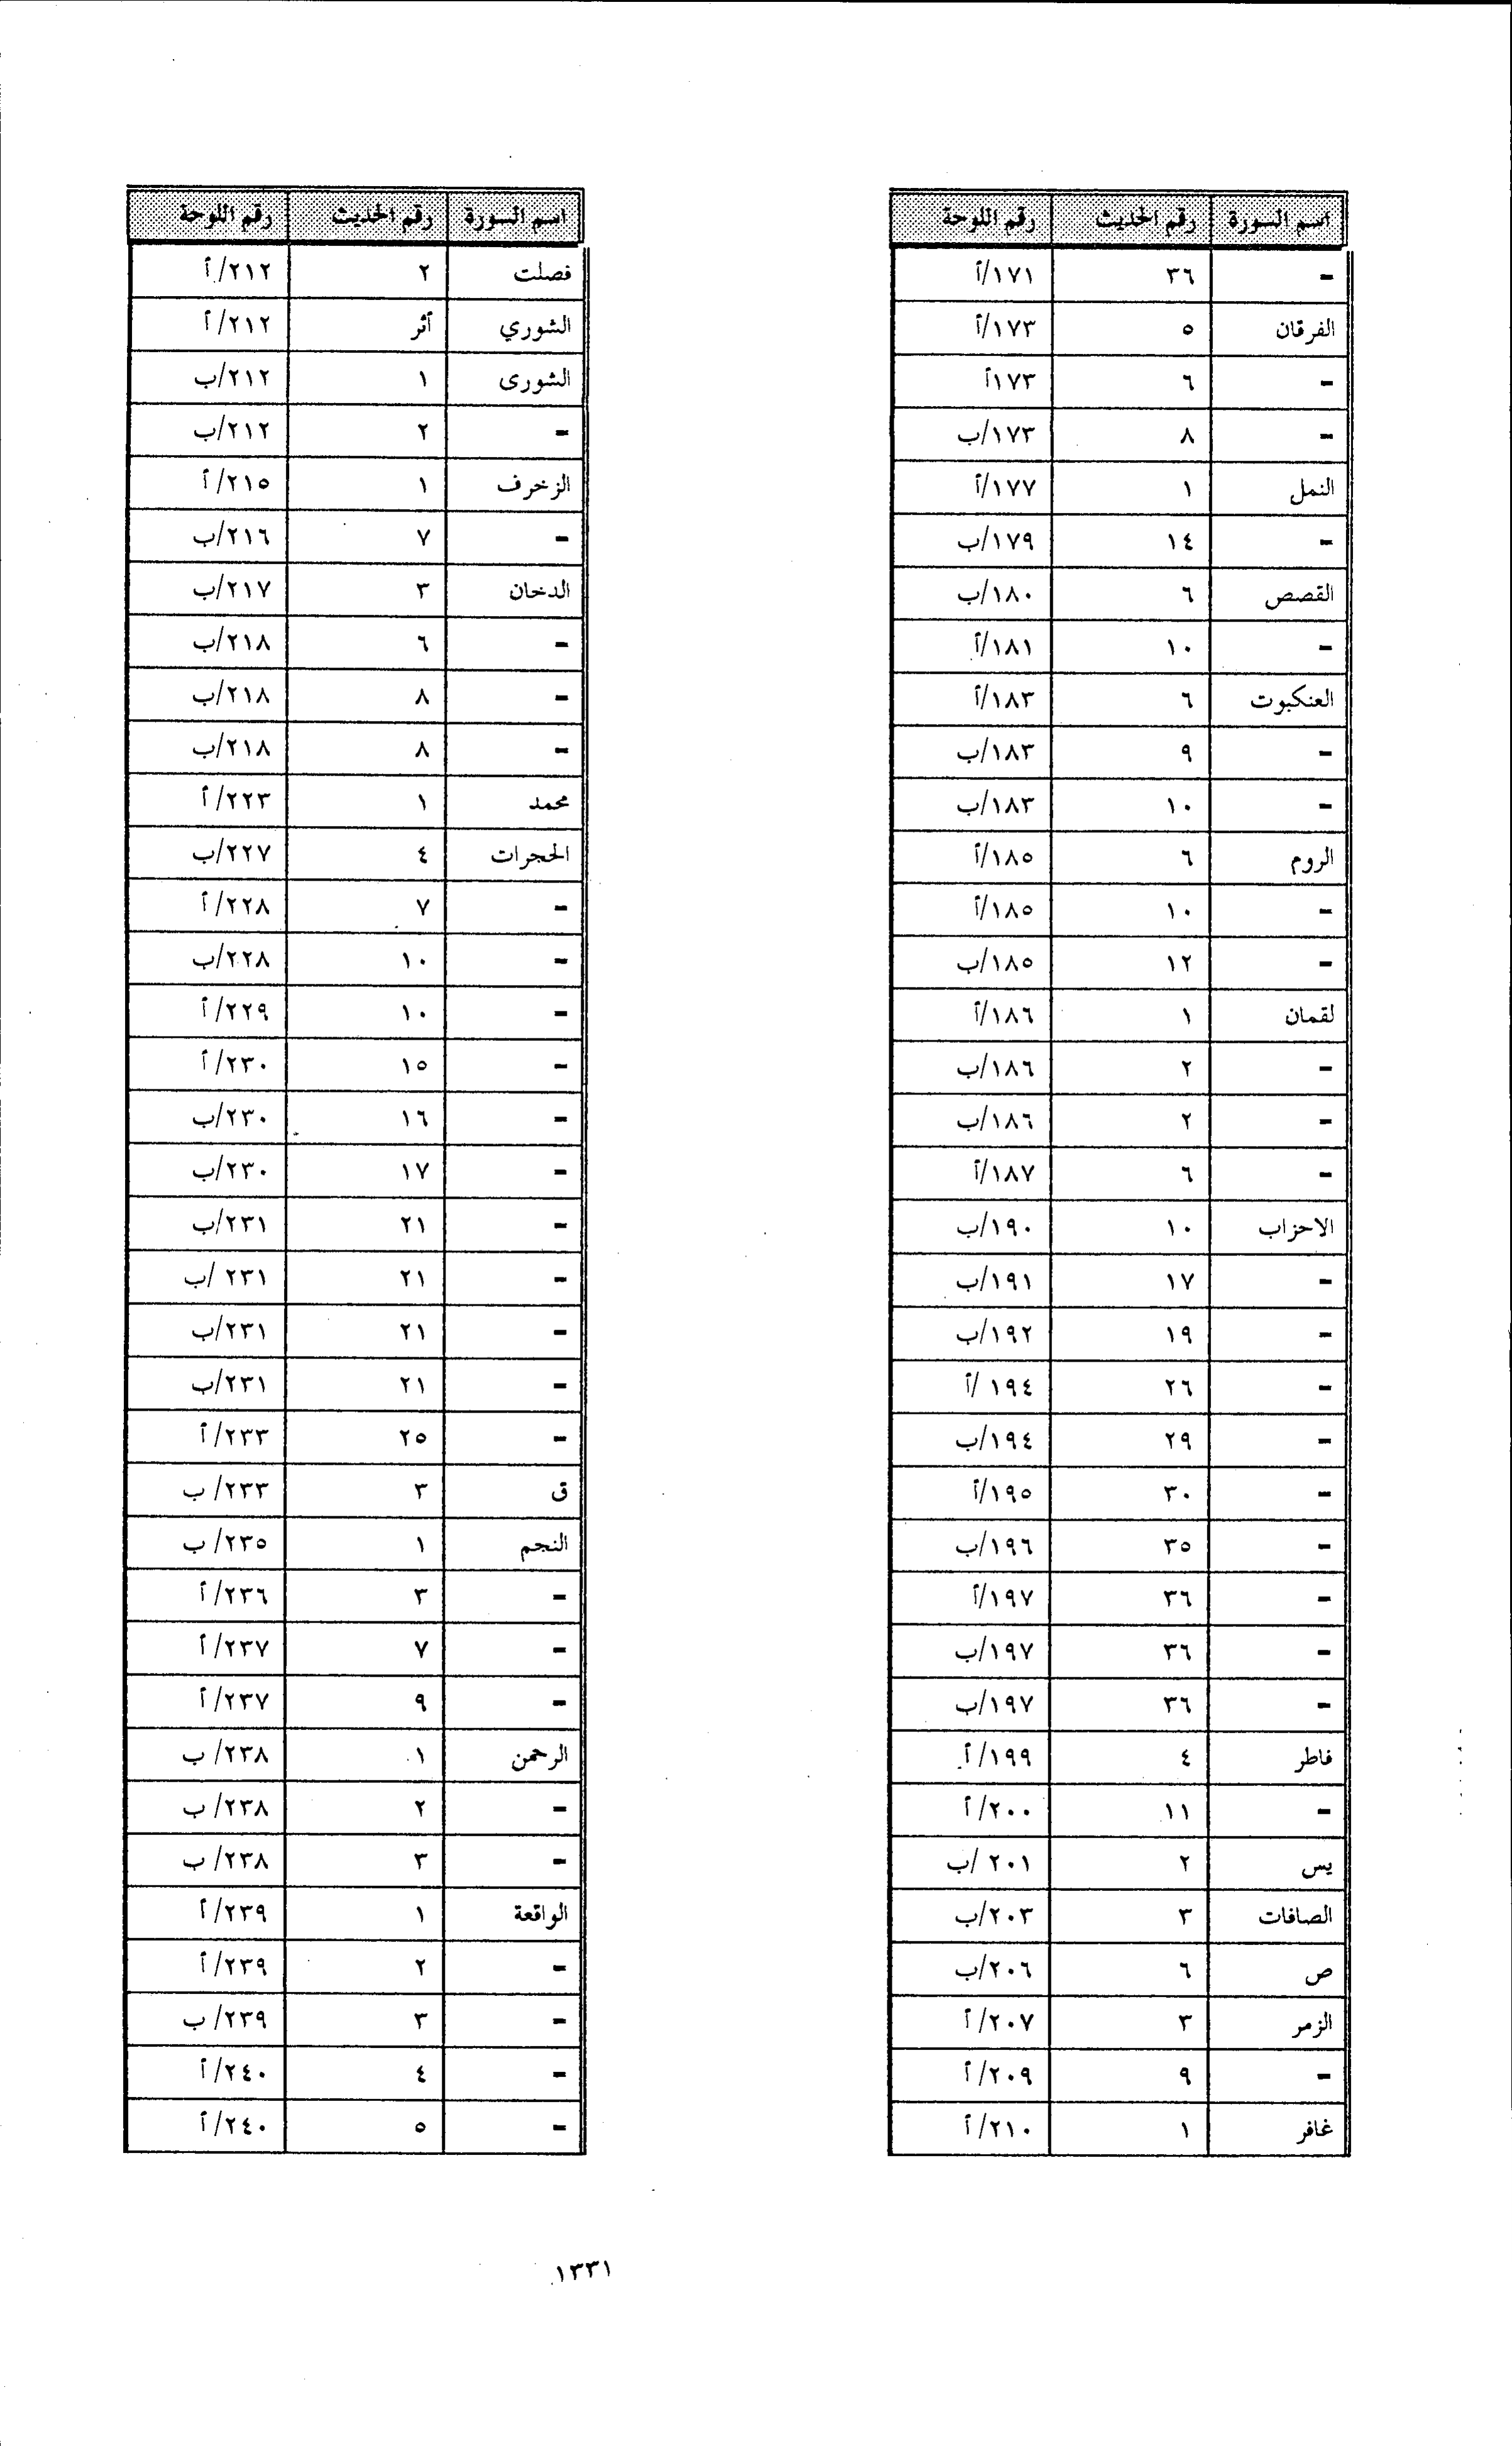 اسم السورة رقم الحديث رقم اللوحة
- ٣٦ ١٧١/أ
الفرقان ٥ ١٧٣/أ
- ٦ ١٧٣أ
- ٨ ١٧٣/ب
النمل ١ ١٧٧/أ
- ١٤ ١٧٩/ب
القصص ٦ ١٨٠/ب
- ١٠ ١٨١/أ
العنكبوت ٦ ١٨٣/أ
- ٩ ١٨٣/ب
- ١٠ ١٨٣/ب
الروم ٦ ١٨٥/أ
- ١٠ ١٨٥/أ
- ١٢ ١٨٥/ب
لقمان ١ ١٨٦/أ
- ٢ ١٨٦/ب
- ٢ ١٨٦/ب
- ٦ ١٨٧/أ
الاحزاب ١٠ ١٩٠/ب
- ١٧ ١٩١/ب
- ١٩ ١٩٢/ب
- ٢٦ ١٩٤ /أ
- ٢٩ ١٩٤/ب
- ٣٠ ١٩٥/أ
- ٣٥ ١٩٦/ب
- ٣٦ ١٩٧/أ
- ٣٦ ١٩٧/ب
- ٣٦ ١٩٧/ب
فاطر ٤ ١٩٩/ أ
- ١١ ٢٠٠/ أ
يس ٢ ٢٠١ /ب
الصافات ٣ ٢٠٣/ب
ص ٦ ٢٠٦/ب
الزمر ٣ ٢٠٧/ أ
- ٩ ٢٠٩/ أ
غافر ١ ٢١٠/ أ
اسم السورة رقم الحديث رقم اللوحة
فصلت ٢ ٢١٢/ أ
الشوري أثر ٢١٢/ أ
الشورى ١ ٢١٢/ب
- ٢ ٢١٢/ب
الزخرف ١ ٢١٥/ أ
- ٧ ٢١٦/ب
الدخان ٣ ٢١٧/ب
- ٦ ٢١٨/ب
- ٨ ٢١٨/ب
- ٨ ٢١٨/ب
محمد ١ ٢٢٣/ أ
الحجرات ٤ ٢٢٧/ب
- ٧ ٢٢٨/ أ
- ١٠ ٢٢٨/ب
- ١٠ ٢٢٩/ أ
- ١٥ ٢٣٠/ أ
- ١٦ ٢٣٠/ب
- ١٧ ٢٣٠/ب
- ٢١ ٢٣١/ب
- ٢١ ٢٣١ /ب
- ٢١ ٢٣١/ب
- ٢١ ٢٣١/ب
- ٢٥ ٢٣٣/ أ
ق ٣ ٢٣٣/ ب
النجم ١ ٢٣٥/ ب
- ٣ ٢٣٦/ أ
- ٧ ٢٣٧/ أ
- ٩ ٢٣٧/ أ
الرحمن ١ ٢٣٨/ ب
- ٢ ٢٣٨/ ب
- ٣ ٢٣٨/ ب
الواقعة ١ ٢٣٩/ أ
- ٢ ٢٣٩/ أ
- ٣ ٢٣٩/ ب
- ٤ ٢٤٠/ أ
- ٥ ٢٤٠/ أ
١٣٣١